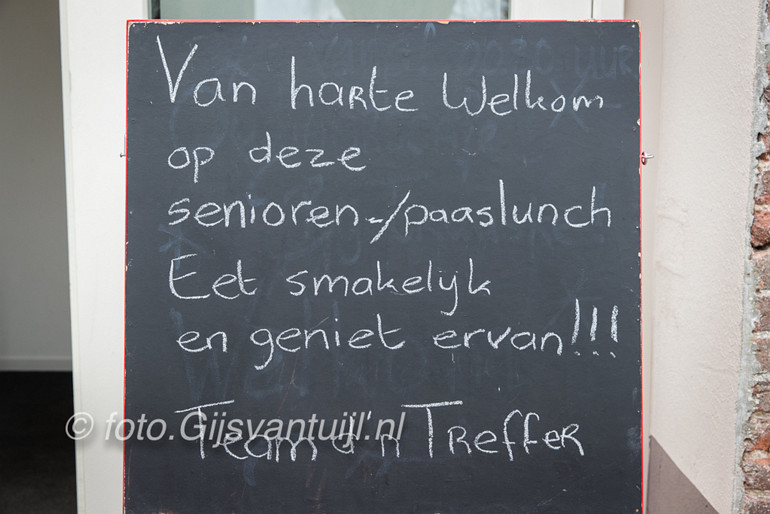 Van harte Welkom
op deze
senioren-/paaslunch
Eet smakelijk
en geniet ervan!!!
Team d'n Treffer
© foto.Gijsvantuijl.nl